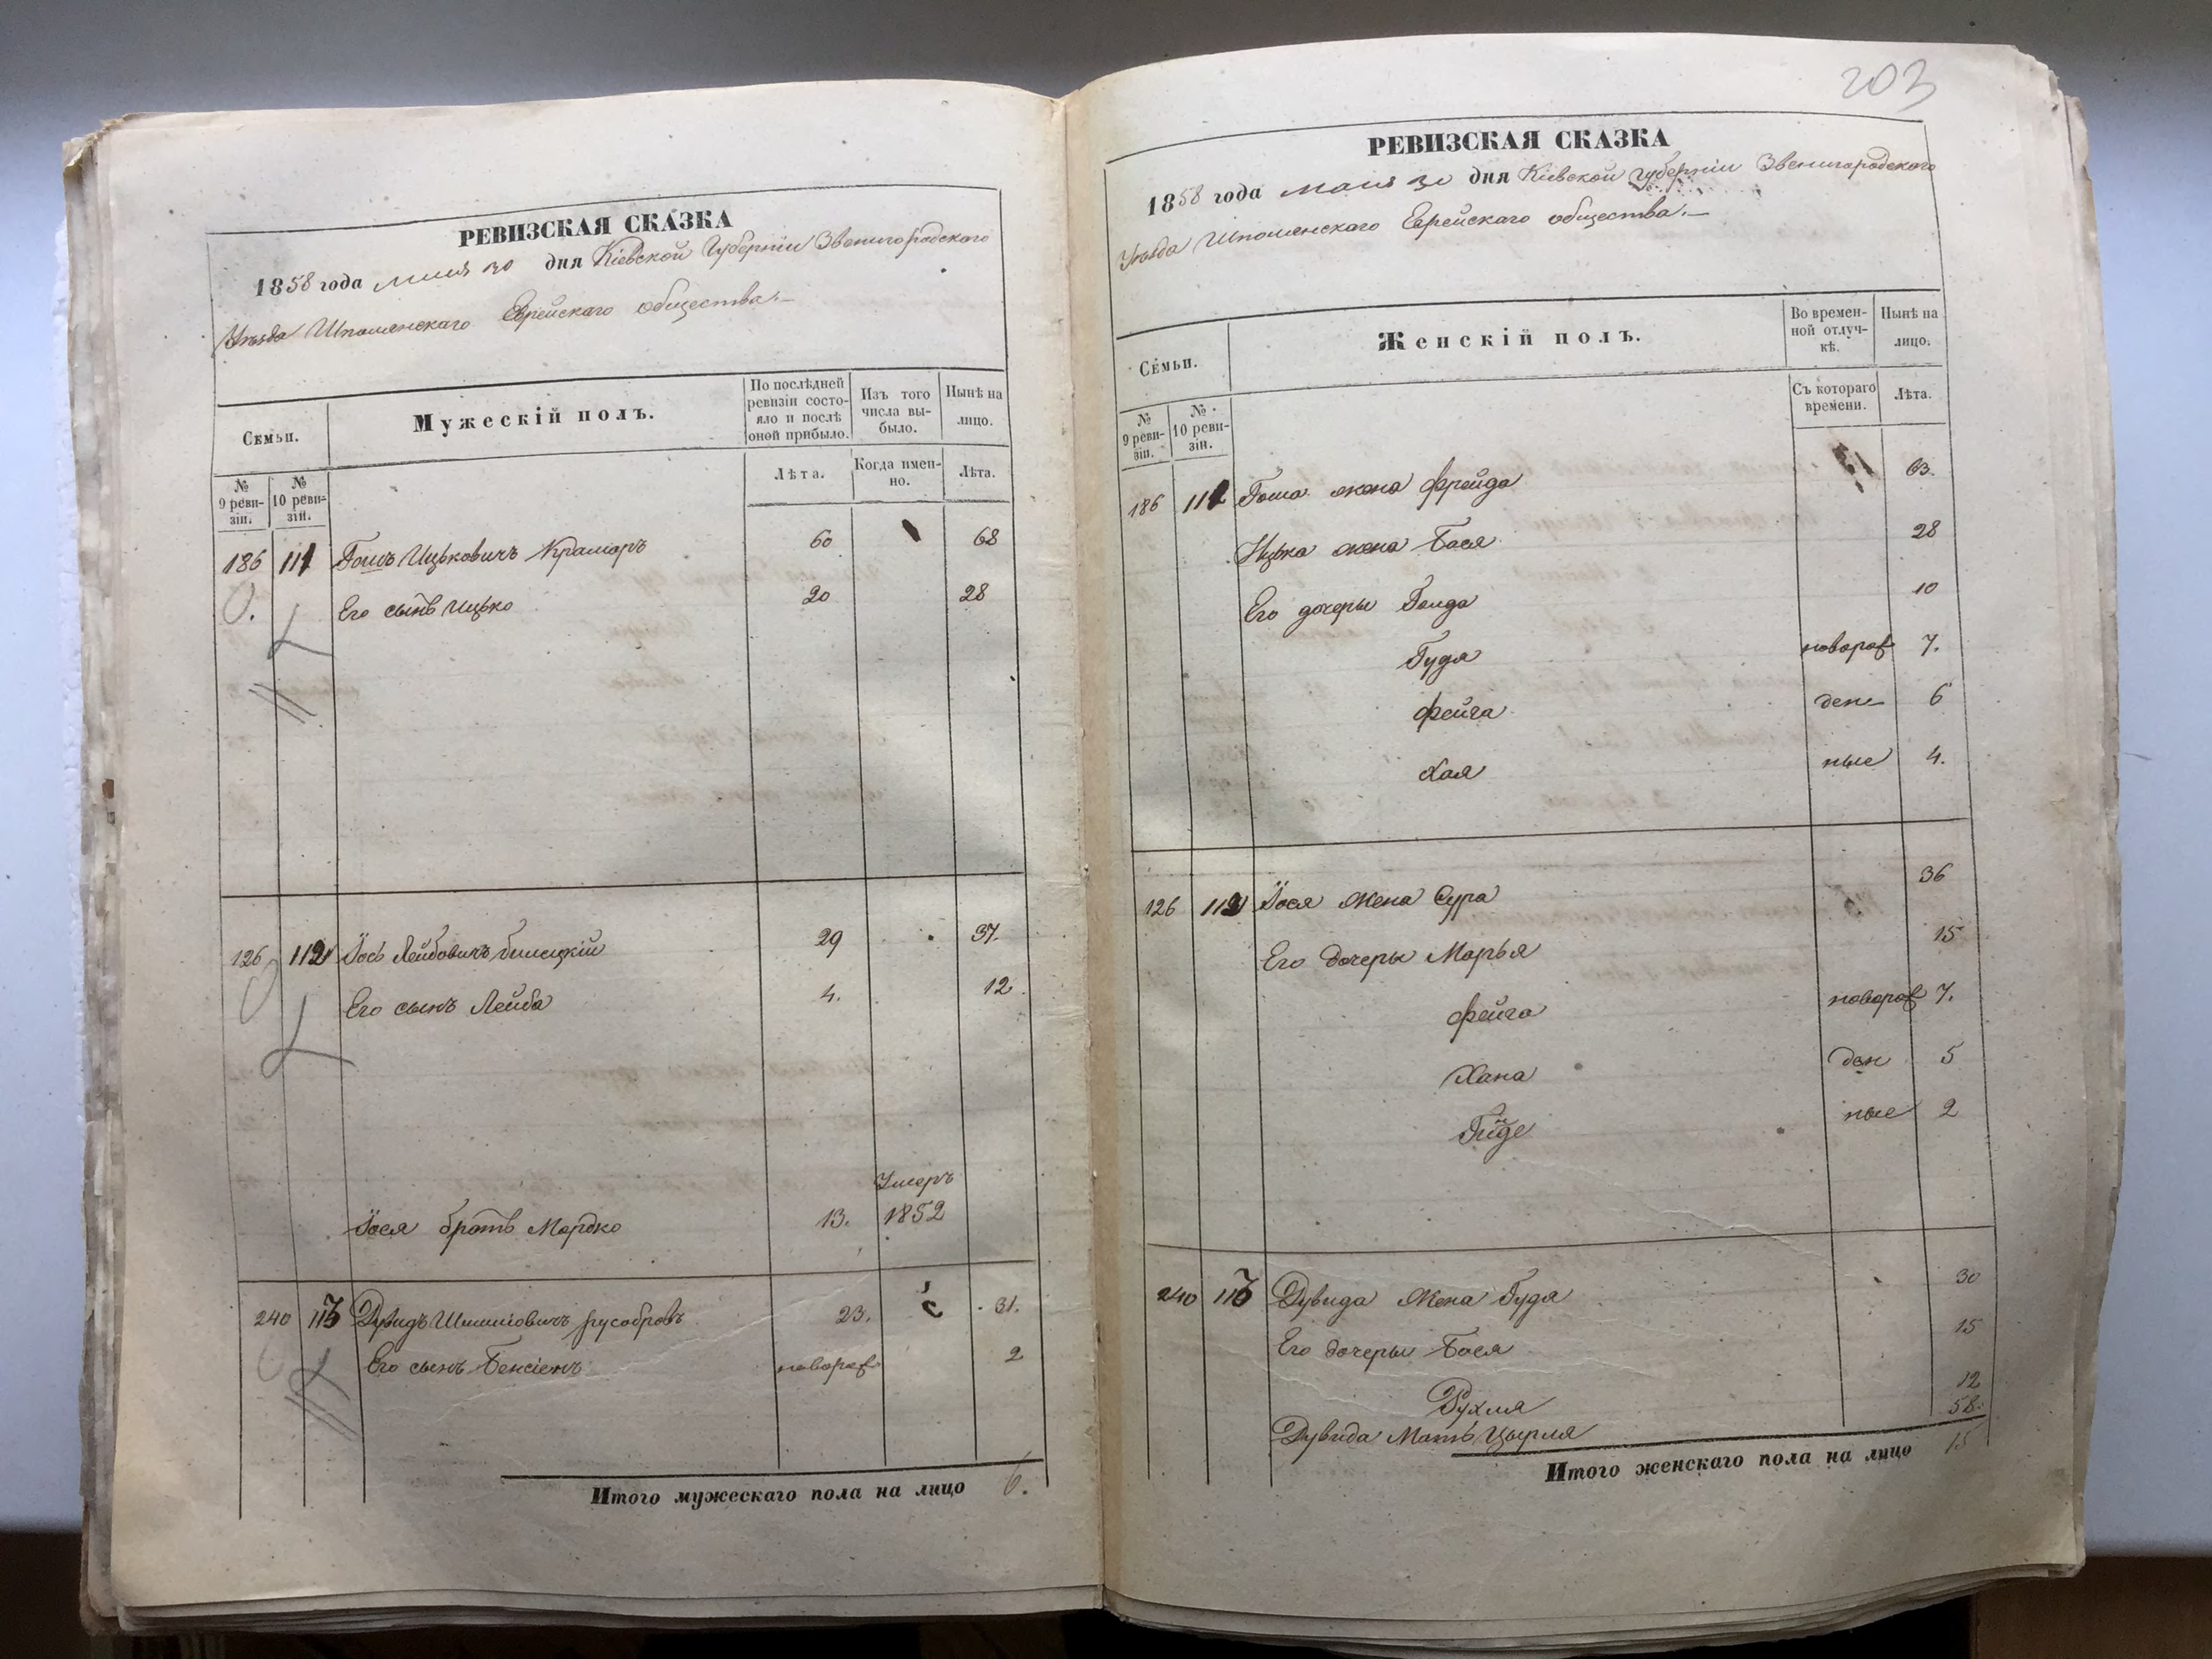 РЕВИЗСКАЯ СКАЗКА
1858 года мая 30 дня Кіевской Губерніи Звенигородскаго
Уѣзда Шполянскаго Еврейскаго общества.
Семьи.
Мужескій полъ.
По послѣдней ревизіи состояло и послѣ оной прибыло.
Изъ того числа выбыло.
Нынѣ на лицо.
№ 9 ревизіи.
№ 10 ревизіи.
Лѣта.
Когда именно.
Лѣта.
186 111 Ицьковичъ Крамаръ 60 68
Его сынъ Ицько 20 28
126 112 Іось Лейбовичъ 29 37.
Его сынъ Лейба 4. 12
Умеръ
Іося братъ Мордко 13. 1852
240 113 Дувидъ 23. 31.
Его сынъ Бенсіенъ новорож 2
Итого мужескаго пола на лицо 6.
203
РЕВИЗСКАЯ СКАЗКА
1858 года мая 30 дня Кіевской губерніи Звенигородскаго
Уѣзда Шполянскаго Еврейскаго общества.
Семьи.
Женскій полъ.
Во временной отлучкѣ.
Нынѣ на лицо.
№ 9 ревизіи.
№ 10 ревизіи.
Съ котораго времени.
Лѣта.
186 111 жена Фрейда 63.
Ицька жена Бася 28
Его дочеры 10
Гудя новорож 7.
Фейга ден 6
Хая ные 4.
126 112 Іося жена Сура 36
Его дочеры Марья 15
Фейга новорож 7.
Хана ден 5
ные 2
240 113 Дувида жена Гудя 30
Его дочеры Бася 15
Рухля 12
Дувида Мать Цырля 58.
Итого женскаго пола на лицо 15